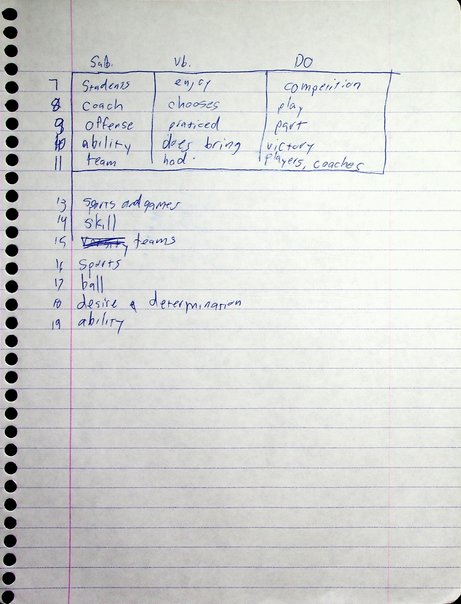 Sub. Vb. DO
7 Students enjoy competition
8 coach chooses play
9 offense praticed part
10 ability does bring victory
11 team had players, coaches
13 sports and games
14 skill
15 teams
16 Sports
17 ball
18 desire & determination
19 ability